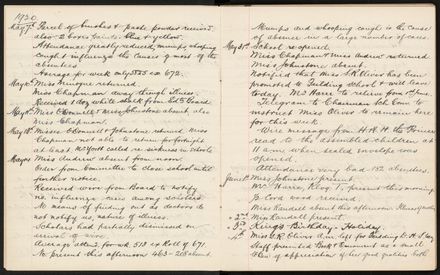 1920
May 7th Parcel of brushes & paste powder received
also 2 boxes paints. Blue & yellow.
Attendance greatly reduced, mumps whooping
cough & influenza the causes of most of the
absentees.
Average for week only 555 ex 672.
May 10 Miss Mulgrue returned.
Miss Chapman away through illness.
Received 1 doz white chalk from Ed'l Board.
Miss O'Connell & Miss Johnstone absent also
Miss Chapman
Misses O'Connell & Johnstone returned. Miss
Chapman not able to return for fortnight
at least
Miss Andrew absent from noon.
Order from Committee to close school until
further notice.
Received wire from Board to notify
re influenza cases among scholars.
No means of finding out as doctors do
not notify us, nature of illness.
Scholars had partially dismissed on
arrival of wire.
Average attend. for wk 518 ex Roll of 671.
No present this afternoon 463 = 208 absent.
Mumps and whooping cough is the cause
of absence in a large number of cases.
May 31st School re opened.
Miss Chapman & Miss Andrew returned
Miss Johnstone absent.
Notified that Miss S.K. Oliver has been
promoted to Fielding School & will leave
today.
Telegram to Chairman Sch Com to
instruct Miss Oliver to remain here
for this week.
Wire message from H.R.H. the Prince
read to the assembled children at
11 am when sealed envelope was
opened.
Attendance very bad 152 absentees.
June 1st Miss Johnstone present.
present this morning
Miss Randell absent this afternoon
2nd Miss Randell present.
3rd King's Birthday - Holiday
4th Miss S.K. Oliver
Staff presented
token of appreciation of her good qualities both